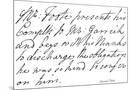 Mr. Foote presents his
Complts to Mr. Garrick
and begs
to discharge the obligation
he was so kind to confer
on him.